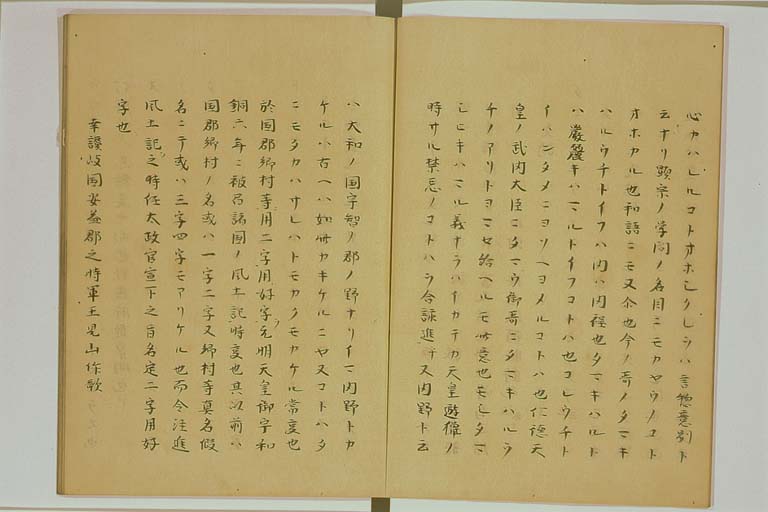 心カハレルコトオホシクレラハ言惣意別ト
云ナリ顕宗ノ学問ノ名目ニモカヤウノコト
オホカル也和語ニモ又尒也今ノ哥ノタマキ
ハルウチトイフハ内ハ内裡也タマキハルト
ハ巌麓キハマルトイフコトハ也コレウチト
イハンタメニヨソヘヨメルコトハ也仁徳天
皇ノ武内大臣ニタマウ御哥ニタマキハルウ
チノアリトヨマセ給ヘルモ此意也モシタマ
シヒキハマル義ナラハイカテカ天皇遊猟ノ
時サル禁忌ノコトハラ合諫進ナ又内野ト云
ハ大和ノ国宇智ノ郡ノ野ナリイマ内野トカ
ケルハ古ヘハ如此カキケルニヤ又コトハタ
ニモタカハサレハトモカクモカケル常度也
於国郡郷村等用二字用好字元明天皇御宇和
銅六年ニ被召諸国ノ風土記時度也其以前ハ
国郡郷村ノ名或ハ一字二字又郷村等真名假
名ニテ或ハ三字四字モアリケル也而令注進
風土記之時任太政官宣下之旨名定二字用好
字也
幸讃岐国安益郡之時軍王見山作歌